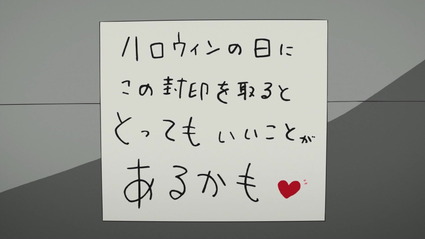 ハロウィンの日に
この封印を取ると
とってもいいことが
あるかも